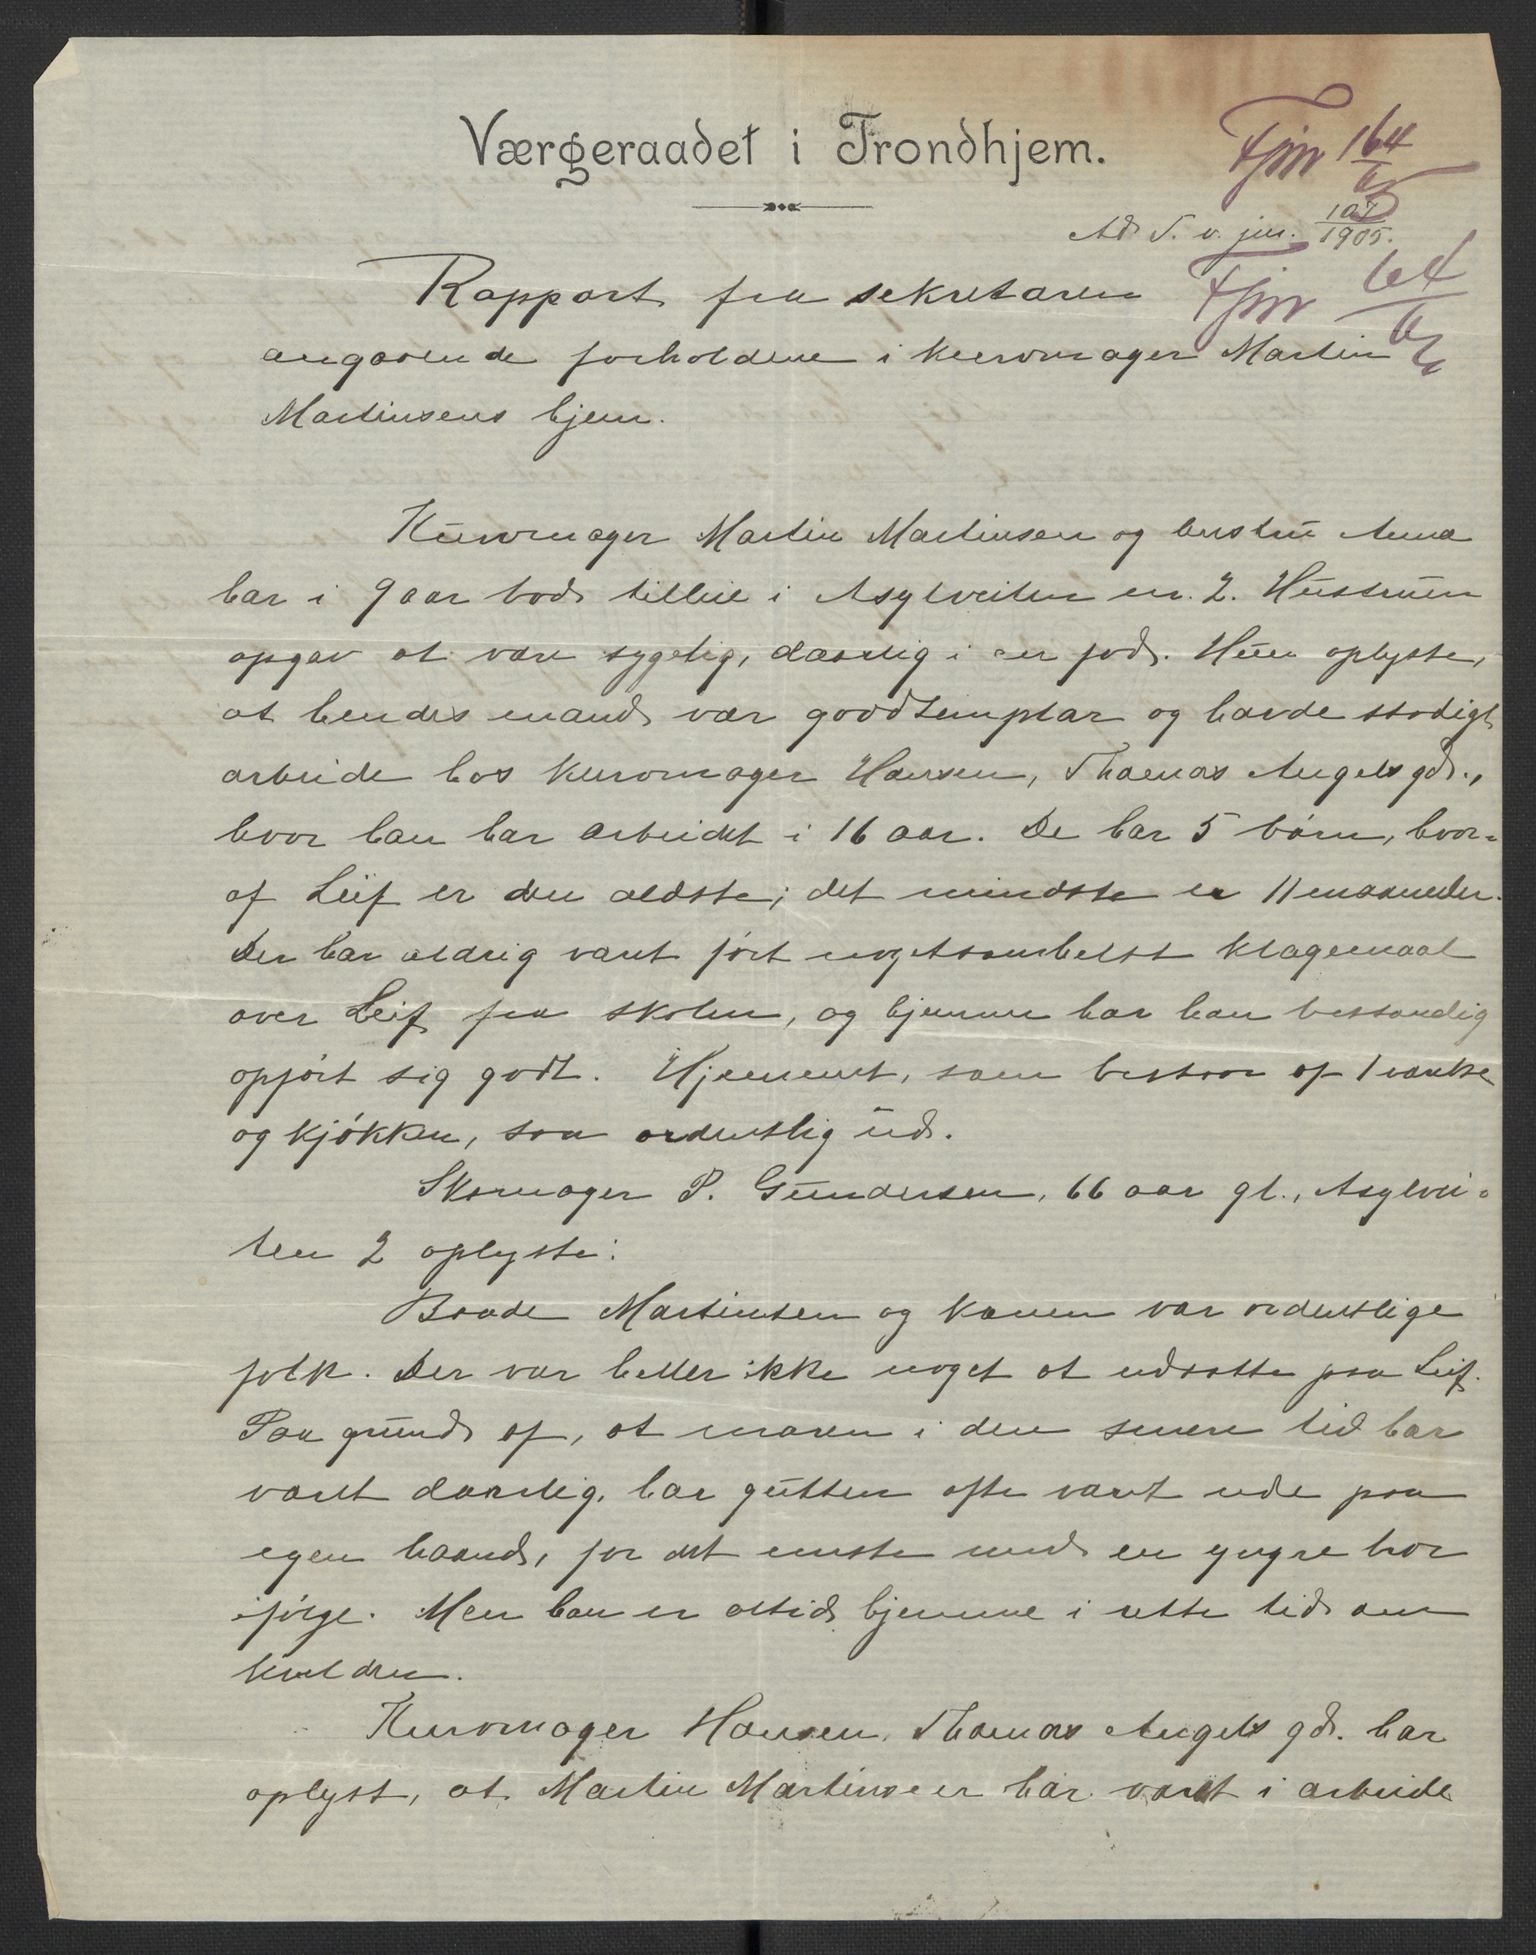 Værgeraadet i Trondhjem.
Fjnr 164
Ad T. v. jnr. 107/1905.
Rapport fra sekretæren
Fjnr 64
angaaende forholdene i kurvmager Martin
Martinsens hjem.
Kurvmager Martin Martinsen og hustru Anna
har i 9 aar bod tilleie i Asylveiten nr. 2. Hustruen
opgav at være sygelig, daarlig i en fod. Hun oplyste,
at hendes mand var goodtemplar og havde stadigt
arbeide hos kurvmager Hansen, Thomas Angels gd.,
hvor han har arbeidet i 16 aar. De har 5 børn, hvor-
af Leif er den ældste; det mindste er 11 maaneder.
Der har aldrig været ført nogetsomhelst klagemaal
over Leif fra skolen, og hjemme har han bestandig
opført sig godt. Hjemmet, som bestaar af 1 værelse
og kjøkken, saa ordentlig ud.
Skomager P. Gundersen, 66 aar gl., Asylvei-
ten 2 oplyste:
Baade Martinsen og konen var ordentlige
folk. Der var heller ikke noget at udsætte paa Leif.
Paa grund af, at moren i den senere tid har
været daarlig, har gutten ofte været ude paa
egen haand, for det meste med en yngre bror
ifølge. Men han er altid hjemme i rette tid om
kvelden.
Kurvmager Hansen, Thomas Angels gd. har
oplyst, at Martin Martinsen har været i arbeide